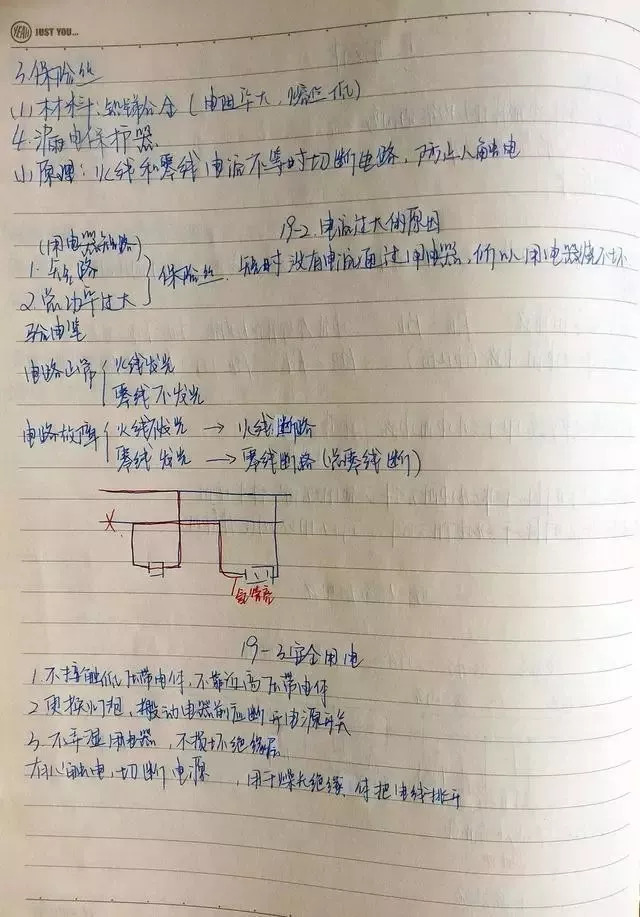 YEAH JUST YOU...
3.保险丝
(1)材料:铅锑合金(电阻率大,熔点低)
4.漏电保护器
(1)原理:火线和零线电流不等时切断电路,防止人触电
19-2 电流过大的原因
(用电器短路)
1.短路
2.总功率过大
保险丝 短时没有电流通过用电器,所以用电器烧不坏
验电笔
电路正常
火线发光
零线不发光
电路故障
火线不发光 → 火线断路
零线发光 → 零线断路(总零线断)
X
氖管亮
19-3 安全用电
1.不接触低压带电体,不靠近高压带电体
2.更换灯泡,搬动电器前应断开电源开关
3.不弄湿用电器,不损坏绝缘层
有人触电,切断电源,用干燥木绝缘体把电线挑开